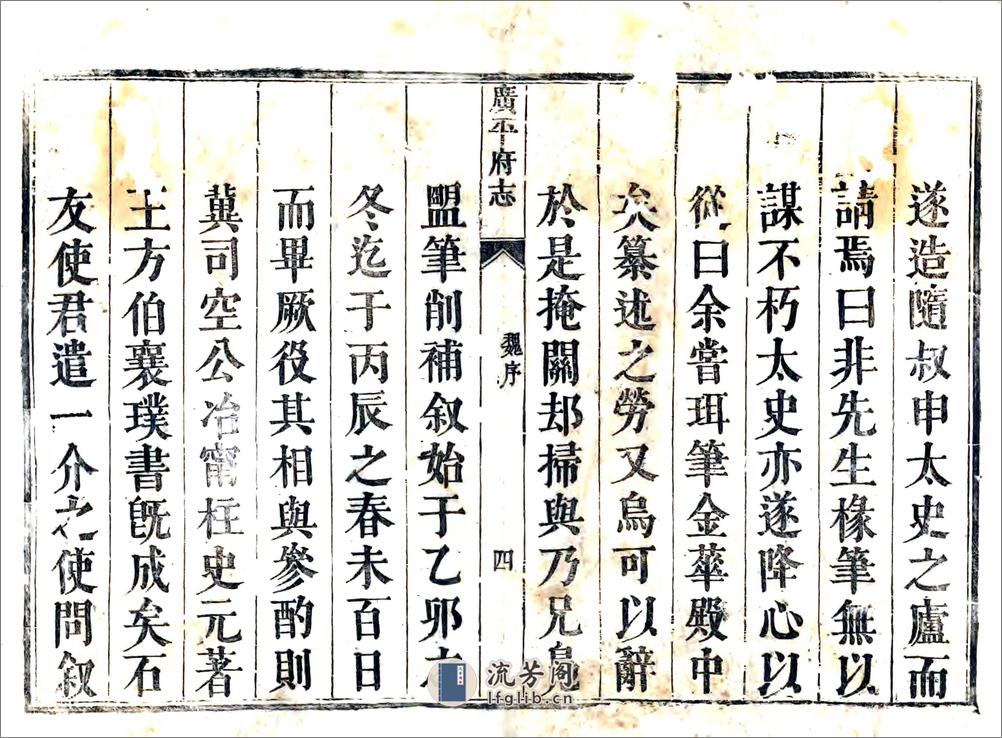 遂造隨叔申太史之廬而
請焉曰非先生椽筆無以
謀不朽太史亦遂降心以
從曰余嘗珥筆金華殿中
矣纂述之勞又烏可以辭
於是掩關却掃與乃兄
廣平府志
魏序
四
盟筆削補叙始于乙卯
冬迄于丙辰之春未百日
而畢厥役其相與參酌則
冀司空公冶甯柱史元著
王方伯襄璞書旣成矣石
友使君遣一介之使問叙
流芳阁
lfglib.cn